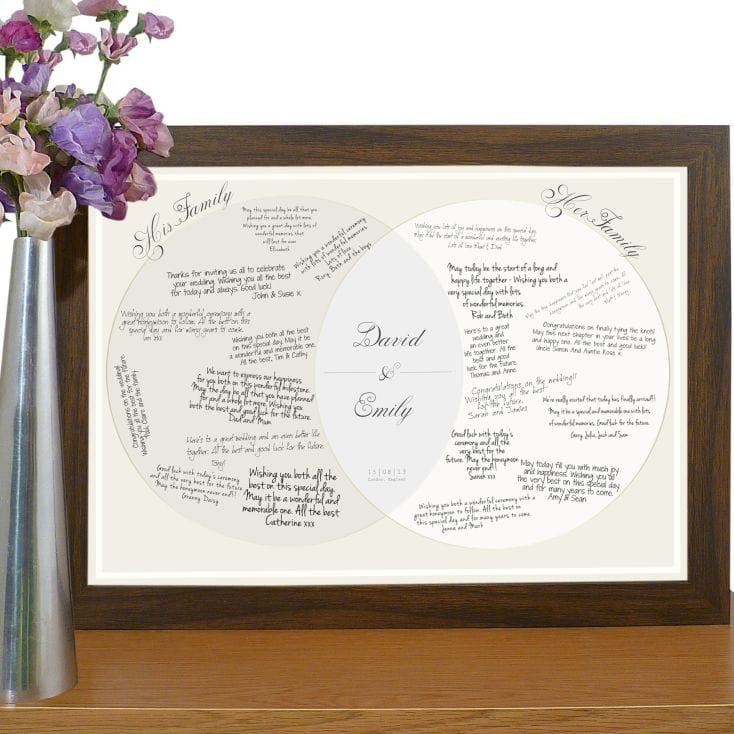 His Family
May this special day be all that you
planned for and a whole lot more.
Wishing you a great day with lots
of wonderful memories, that
will last for ever
Elizabeth
Wishing you a wonderful ceremony
with lots of wonderful memories.
Lots of love
Rory, Beth and the boys
Thanks for inviting us all to celebrate
your wedding. Wishing you all the best
for today and always. Good luck!
John & Susie x
Wishing you both a wonderful ceremony with a
great honeymoon to follow. All the best on this
special day and for many years to come.
Ian xxx
Wishing you both all the best
on this special day. May it be
a wonderful and memorable one.
All the best, Tim & Cathy
Congratulations on the wedding!
Wishing you all the best for the future.
Paul, Claire and the family
We want to express our happiness
for you both on this wonderful milestone.
May the day be all that you have planned
for and a whole lot more. Wishing you
both the best and good luck for the future.
Dad and Mum
Here's to a great wedding and an even better life
together. All the best and good luck for the future.
Tony!
Good luck with today's ceremony
and all the very best for the future.
May the honeymoon never end!!
Granny Daisy
Wishing you both all the
best on this special day.
May it be a wonderful and
memorable one. All the best
Catherine xxx
David
&
Emily
15|08|13
London, England
Her Family
Wishing you lots of joy and happiness on this special day.
May it be the start of a long and exciting life together.
Lots of love Mum & Dad
May today be the start of a long and
happy life together - Wishing you both a
very special day with lots
of wonderful memories.
Rob and Beth
May the two happiest
the very best and lots of love
Here's to a great
wedding and
an even better
life together. All the
best and good
luck for the future.
Thomas and Anne
Congratulations on finally tying the knot!
May this next chapter in your lives be a long
and happy one. All the best and good luck!
Uncle Simon And Auntie Rose x
Congratulations on the wedding!!
Wishing you all the best
for the future.
Sarah and James
We're really excited that today has finally arrived!!
May it be a special and memorable one with lots
of wonderful memories. Good luck for the future.
Gary, Julia, Jack and Sam
Good luck with today's
ceremony and all
the very best for the
future. May the honeymoon
never end!!
Sarah xxx
May today fill you with much joy
and happiness. Wishing you all
the very best on this special day
and for many years to come.
Amy & Sean
Wishing you both a wonderful ceremony with a
great honeymoon to follow. All the best on
this special day and for many years to come.
Jenna and Mark